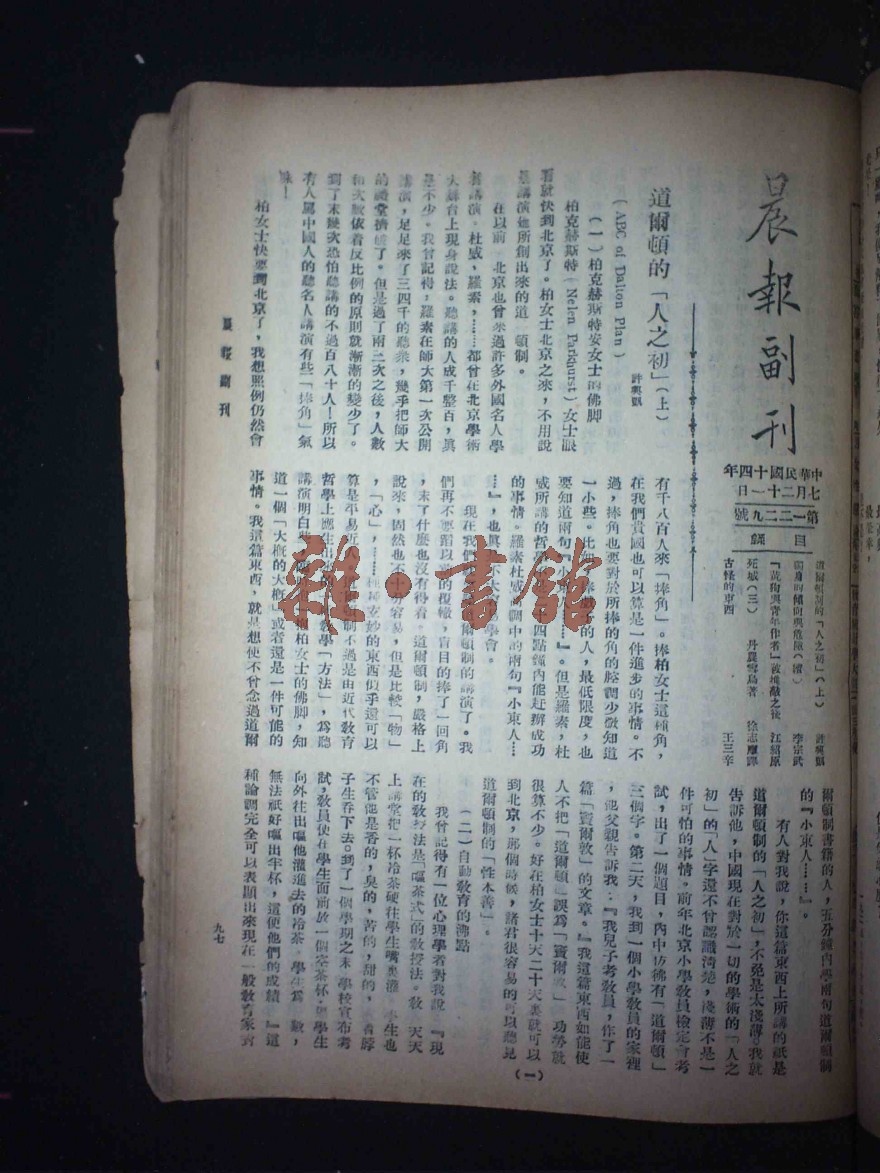 晨報副刊
中華民國十四年
七月二十一日
第一二二九號
目錄
道爾頓制的「人之初」(上) 許興凱
李宗武
「莫荷與青年作者」被燒敵之後 江紹原
死城(三) 丹農雪烏著 徐志摩譯
古怪的東西 王三辛
道爾頓的「人之初」(上)
許興凱
(ABC of Dalton Plan)
(一)柏克赫斯特女士的佛脚
柏克赫斯特(Nelen Parkhurst)女士眼
看就快到北京了。柏女士北京之來,不用說
是講演她所創出來的道 頓制。
在以前 北京也曾來過許多外國名人學
者講演。杜威,羅素,……都曾在北京學術
大舞台上現身說法。聽講的人成千整百,真
是不少。我曾記得,羅素在師大第一次公開
講演,足足來了三四千的聽衆,幾乎把師大
的禮堂擠破了。但是過了兩三次之後,人數
和次數依着反比例的原則就漸漸的變少了。
到了末幾次恐怕聽講的不過百八十人!所以
有人罵中國人的聽名人講演有些「捧角」氣
味!
柏女士快要到北京了,我想照例仍然會
有千八百人來「捧角」。捧柏女士這種角,
在我們貴國也可以算是一件進步的事情。不
過,捧角也要對於所捧的角的腔調少微知道
一小些。比如 捧戲 的人,最低限度,也
要知道兩句『小東人……』。但是羅素,杜
威所講的哲學 四點鐘內能赶辦成功
的事情。羅素杜威 調中的兩句『小東人…
…』,也眞 不大 易學會。
現在我們 道爾頓制的講演了。我
們再不要蹈以前的覆轍,盲目的捧了一回角
,末了什麼也沒有得着。道爾頓制,嚴格上
說來,固然也不十分容易,但是比較「物」
,「心」,…… 種玄妙的東西似乎還可以
算是平易近人 制不過是由近代教育
哲學上應生出 學「方法」,爲聽
講演明白 抱柏女士的佛脚,知
道一個「大概的大概」或者還是一件可能的
事情。我這篇東西,就是想使不曾念過道爾
爾頓制書籍的人,五分鐘內學兩句道爾頓制
的『小東人……』。
有人對我說,你這篇東西上所講的祇是
道爾頓制的「人之初」,不免是太淺薄。我就
告訴他,中國現在對於一切的學術的「人之
初」的「人」字還不曾認識清楚,淺薄不是一
件可怕的事情。前年北京小學教員檢定會考
試,出了一個題目,內中彷彿有「道爾頓」
三個字。第二天,我到一個小學教員的家裡
,他父親告訴我:『我兒子考教員,作了一
篇「竇爾敦」的文章。』我這篇東西如能使
人不把「道爾頓」誤爲「竇爾敦」 功勞就
很算不少。好在柏女士十天二十天裏就可以
到北京,那個時候,諸君很容易的可以聽見
道爾頓制的「性本善」。
(二)自動教育的沸點
我曾記得有一位心理學者對我說 『現
在的教授法是「嘔茶式」的教授法。教 天天
上講堂把一杯冷茶硬往學生嘴裏灌。學生也
不管他是香的,臭的,苦的,甜的, 着脖
子生吞下去。到了一個學期之末 學校宣布考
試,教員便在學生面前放一個空茶杯,要學生
向外往出嘔他灌進去的冷茶。學生爲 數,
無法祇好嘔出半杯,這便他們的成績 『這
種論調完全可以表顯出來現在一般教育家對
(一)
晨報副刊
九七
雜·書館